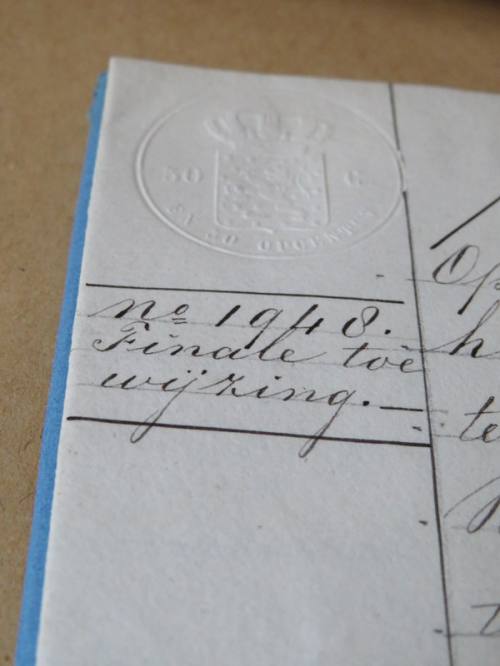 50 C
EN 20 OPCENTEN
no 1948.
Finale toe
wijzing.—
Op
h
te